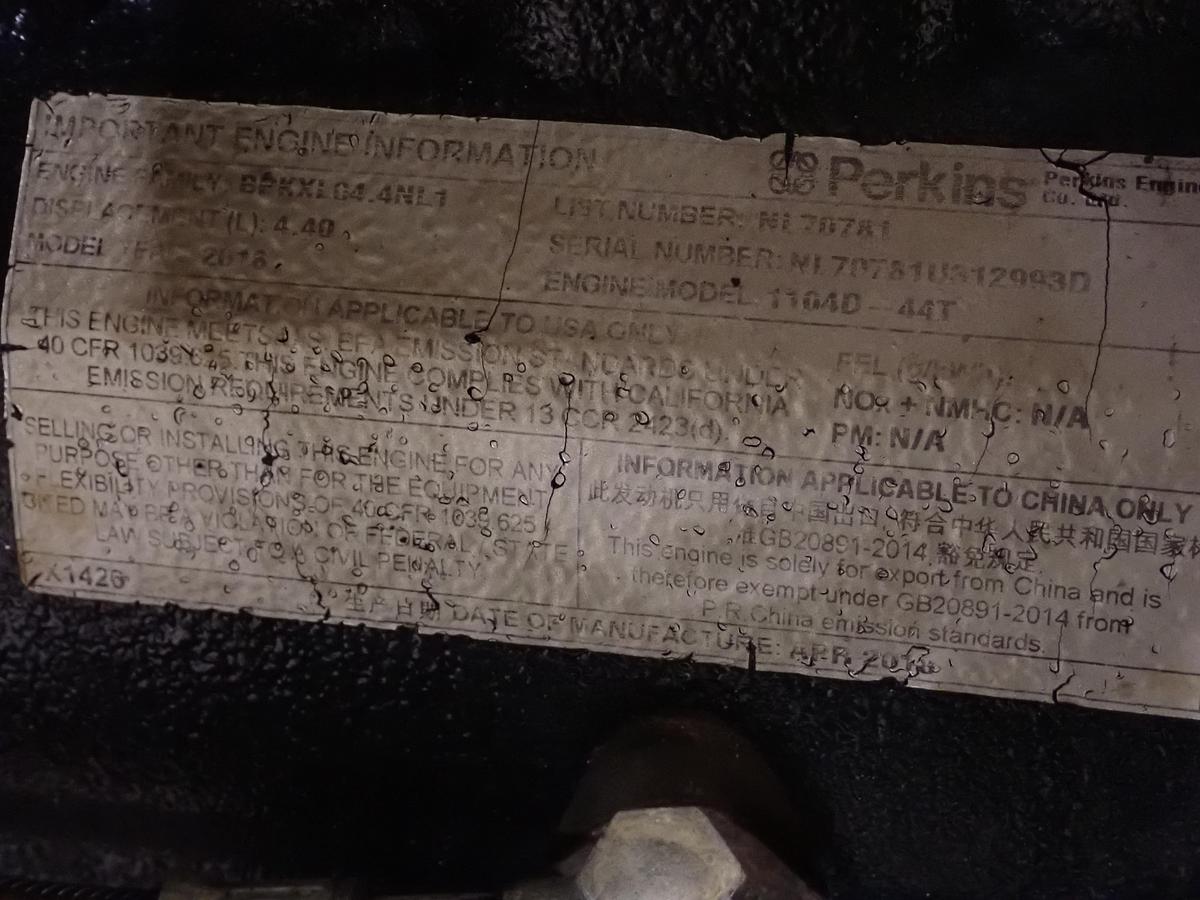 IMPORTANT ENGINE INFORMATION
Perkins
Perkins Engines
Co. Ltd.
ENGINE FAMILY:
DISPLACEMENT (L): 4.40
MODEL YEAR:
LIST NUMBER: NL70781
SERIAL NUMBER:
ENGINE MODEL 1104D - 44T
INFORMATION APPLICABLE TO USA ONLY
THIS ENGINE MEETS U.S. EPA EMISSION STANDARDS UNDER
40 CFR 1039.625. THIS ENGINE COMPLIES WITH CALIFORNIA
EMISSION REQUIREMENTS UNDER 13 CCR 2423(d).
FEL (g/kWh):
NOx + NMHC: N/A
PM: N/A
SELLING OR INSTALLING THIS ENGINE FOR ANY
PURPOSE OTHER THAN FOR THE EQUIPMENT
FLEXIBILITY PROVISIONS OF 40 CFR 1039.625
CITED MAY BE A VIOLATION OF FEDERAL / STATE
LAW SUBJECT TO A CIVIL PENALTY.
INFORMATION APPLICABLE TO CHINA ONLY
此发动机只用作自中国出口,符合中华人民共和国国家标
准GB20891-2014 豁免规定.
This engine is solely for export from China and is
therefore exempt under GB20891-2014 from
P.R.China emission standards.
生产日期 DATE OF MANUFACTURE: APR